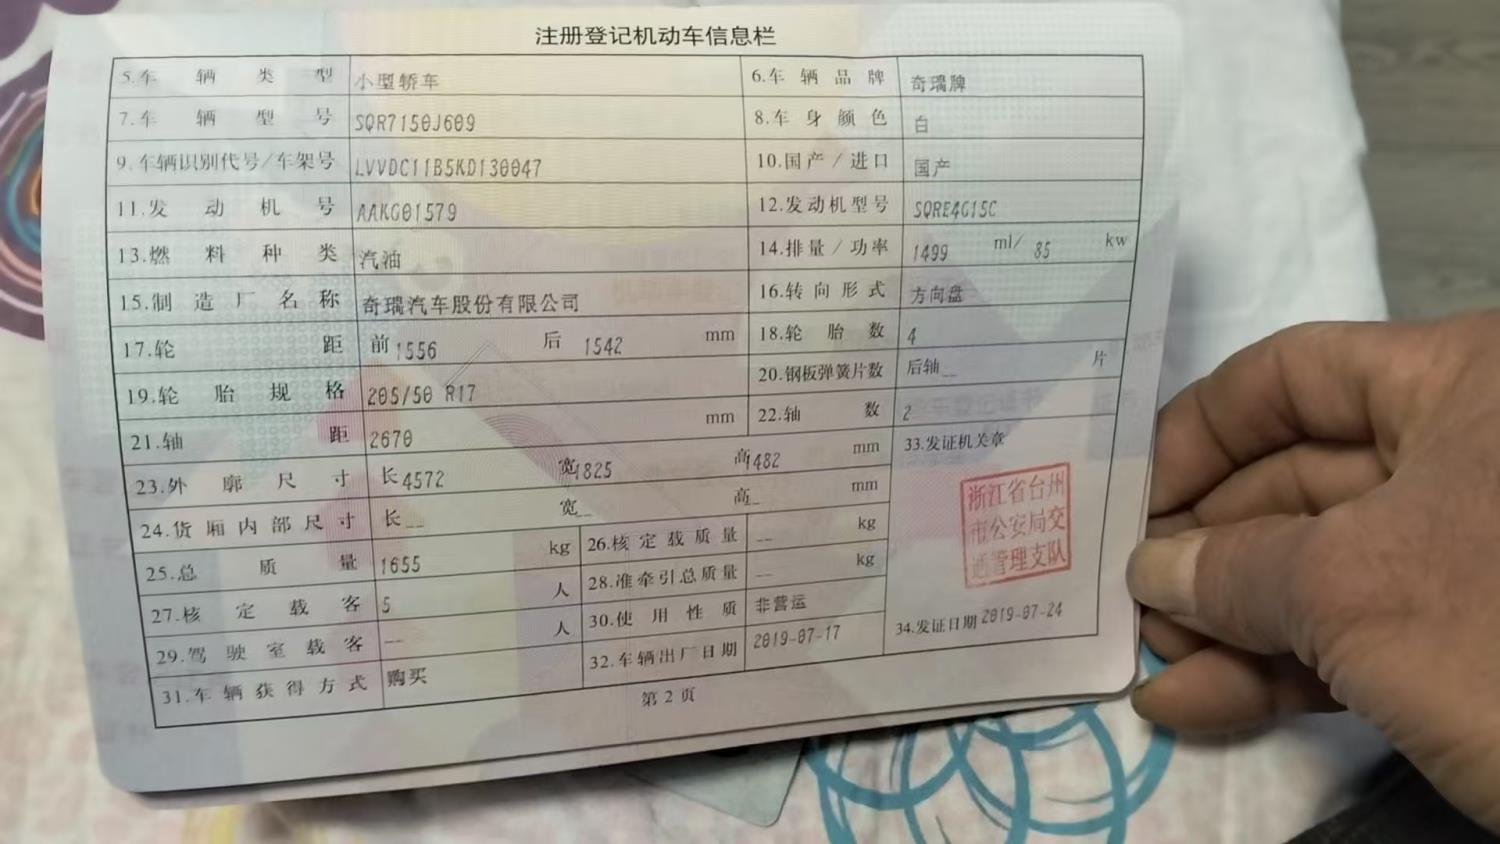 注册登记机动车信息栏
5.车辆类型 小型轿车 6.车辆品牌 奇瑞牌
7.车辆型号 SQR7150J609 8.车身颜色 白
9.车辆识别代号/车架号 LVVDC11B5KD130047 10.国产/进口 国产
11.发动机号 AAKG01579 12.发动机型号 SQRE4G15C
13.燃料种类 汽油 14.排量/功率 1499 ml/ 85 kw
15.制造厂名称 奇瑞汽车股份有限公司 16.转向形式 方向盘
17.轮距 前1556 后 1542 mm 18.轮胎数 4
19.轮胎规格 205/50 R17 20.钢板弹簧片数 后轴__ 片
21.轴距 2670 mm 22.轴数 2
23.外廓尺寸 长4572 宽1825 高1482 mm 33.发证机关章
24.货厢内部尺寸 长__ 宽__ 高__ mm
浙江省台州
市公安局交
通管理支队
25.总质量 1655 kg 26.核定载质量 __ kg
27.核定载客 5 人 28.准牵引总质量 __ kg
29.驾驶室载客 -- 人 30.使用性质 非营运
31.车辆获得方式 购买 32.车辆出厂日期 2019-07-17 34.发证日期 2019-07-24
第2页